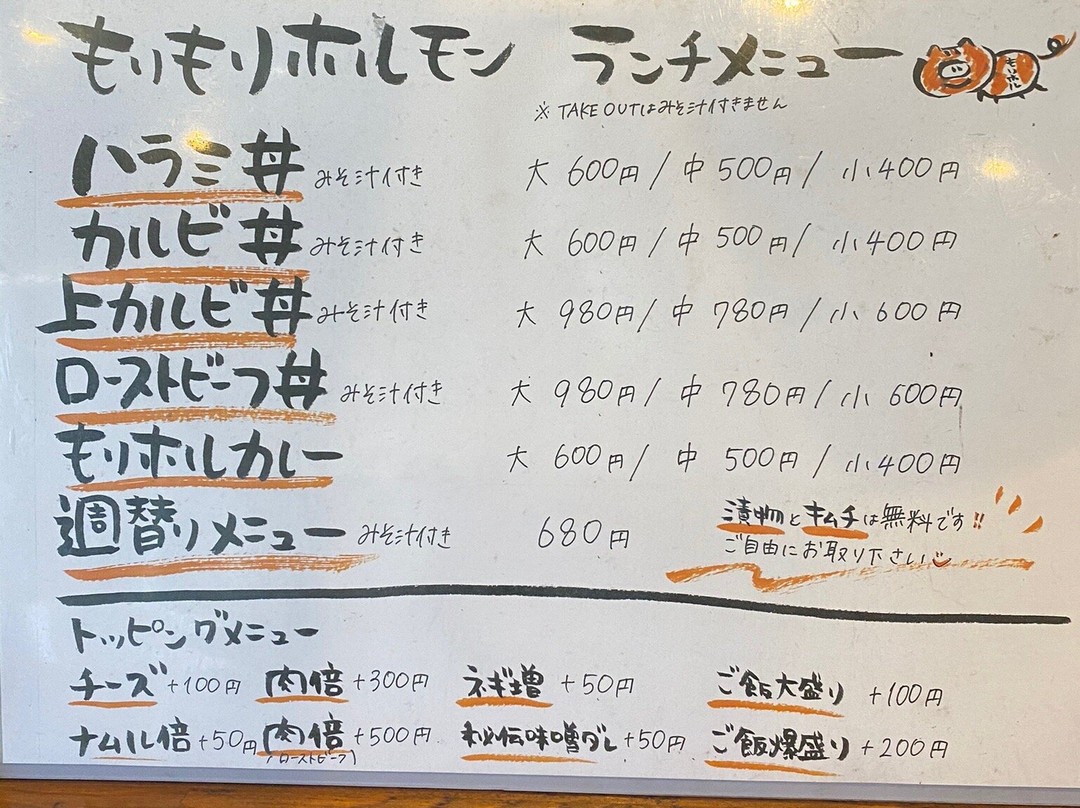 もりもりホルモン ランチメニュー
もりホル
※ TAKE OUTはみそ汁付きません
ハラミ丼 みそ汁付き 大 600円 / 中 500円 / 小 400円
カルビ丼 みそ汁付き 大 600円 / 中 500円 / 小 400円
上カルビ丼 みそ汁付き 大 980円 / 中 780円 / 小 600円
ローストビーフ丼 みそ汁付き 大 980円 / 中 780円 / 小 600円
もりホルカレー 大 600円 / 中 500円 / 小 400円
週替りメニュー みそ汁付き 680円
漬物とキムチは無料です!!
ご自由にお取り下さい
トッピングメニュー
チーズ +100円 肉倍 +300円 ネギ増 +50円 ご飯大盛り +100円
ナムル倍 +50円 肉倍 +500円 秘伝味噌ダレ +50円 ご飯爆盛り +200円
(ローストビーフ)